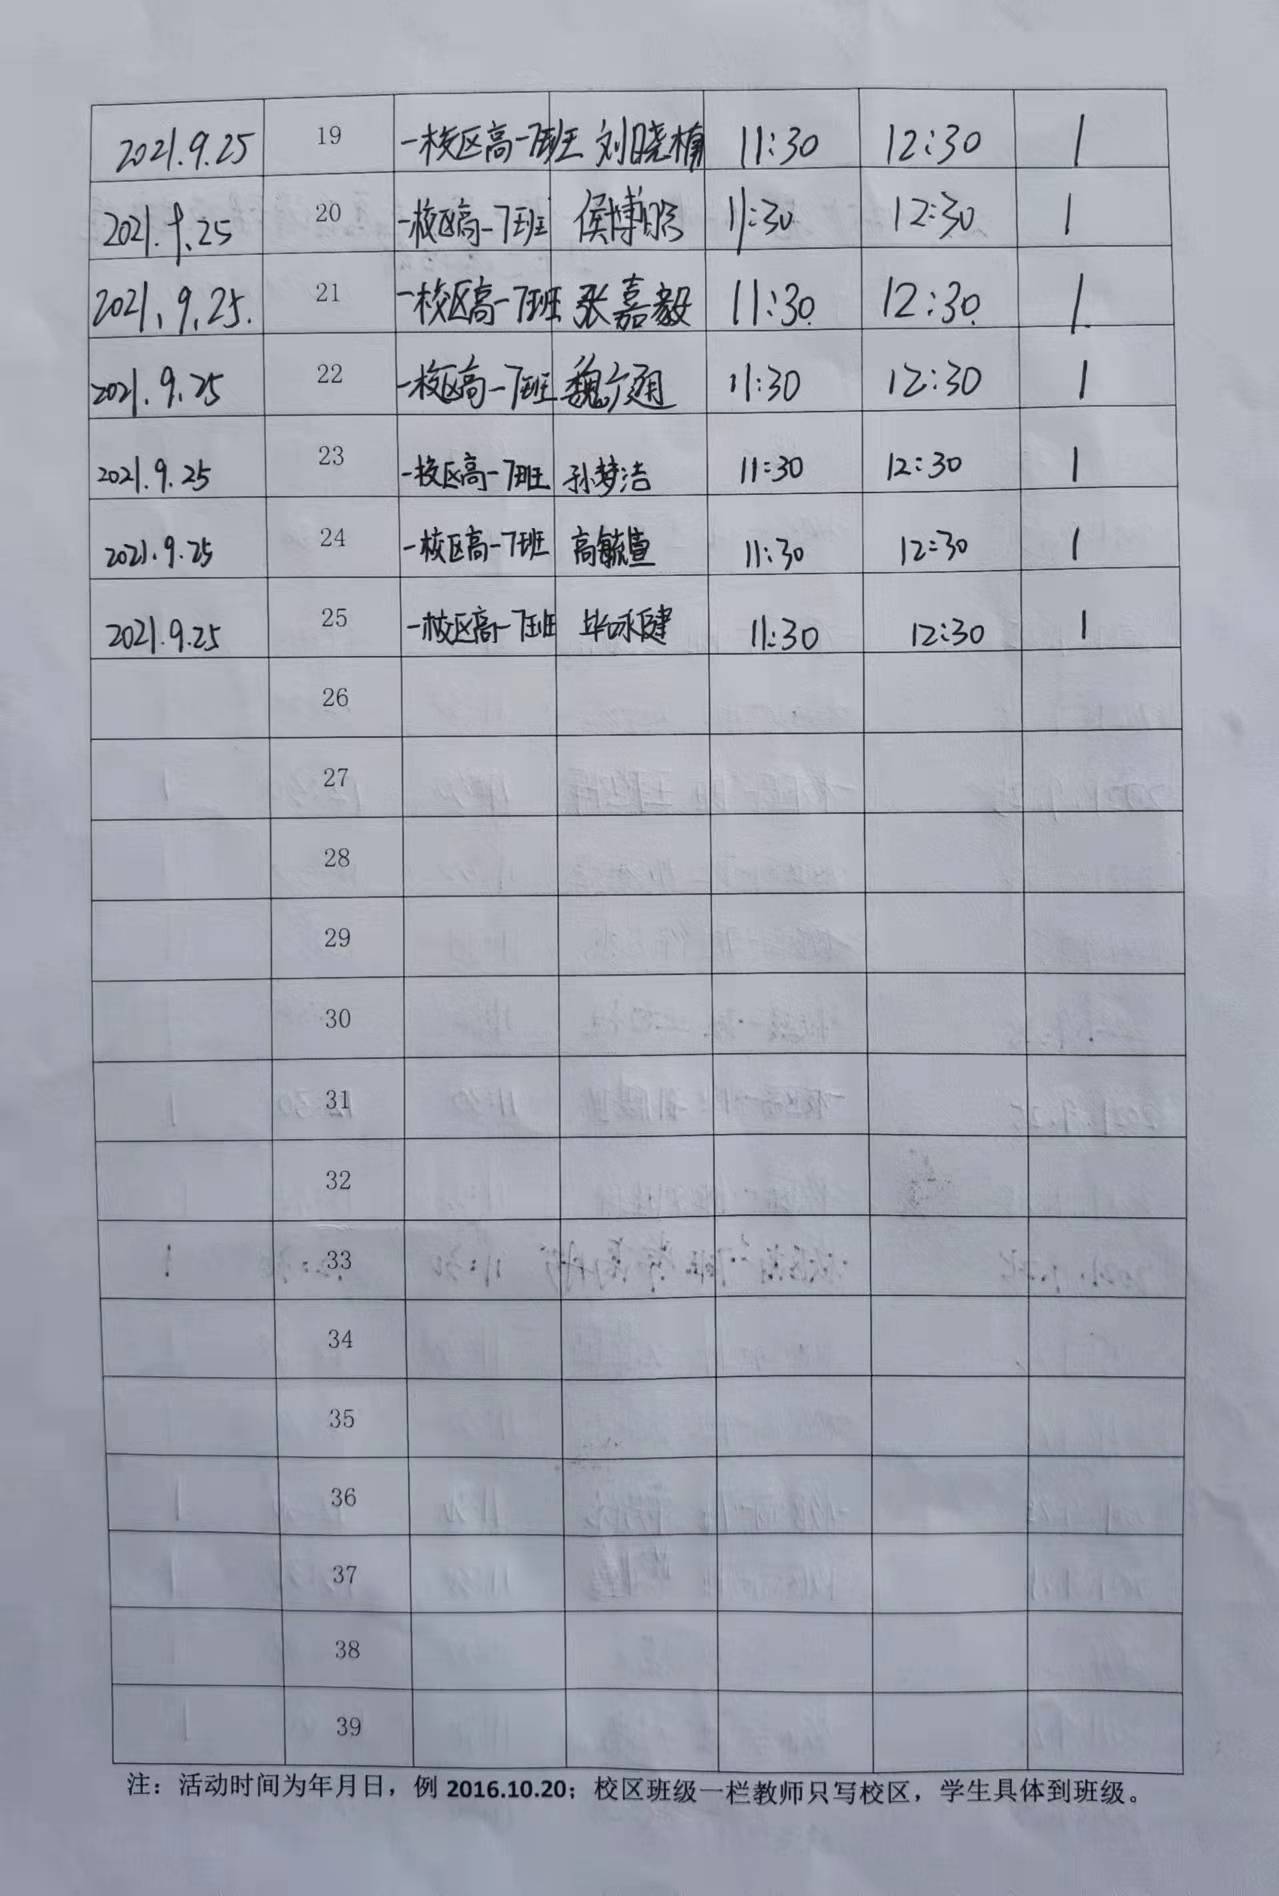 2021.9.25 19 一校区高一7班 刘晓楠 11:30 12:30 1
2021.9.25 20 一校区高一7班 侯博 11:30 12:30 1
2021.9.25. 21 一校区高一7班 张嘉毅 11:30 12:30 1
2021.9.25 22 一校区高一7班 魏 11:30 12:30 1
2021.9.25 23 一校区高一7班 孙梦洁 11:30 12:30 1
2021.9.25 24 一校区高一7班 高毓萱 11:30 12:30 1
2021.9.25 25 一校区高一7班 毕咏健 11:30 12:30 1
26
27
28
29
30
31
32
33
34
35
36
37
38
39
注：活动时间为年月日，例 2016.10.20；校区班级一栏教师只写校区，学生具体到班级。